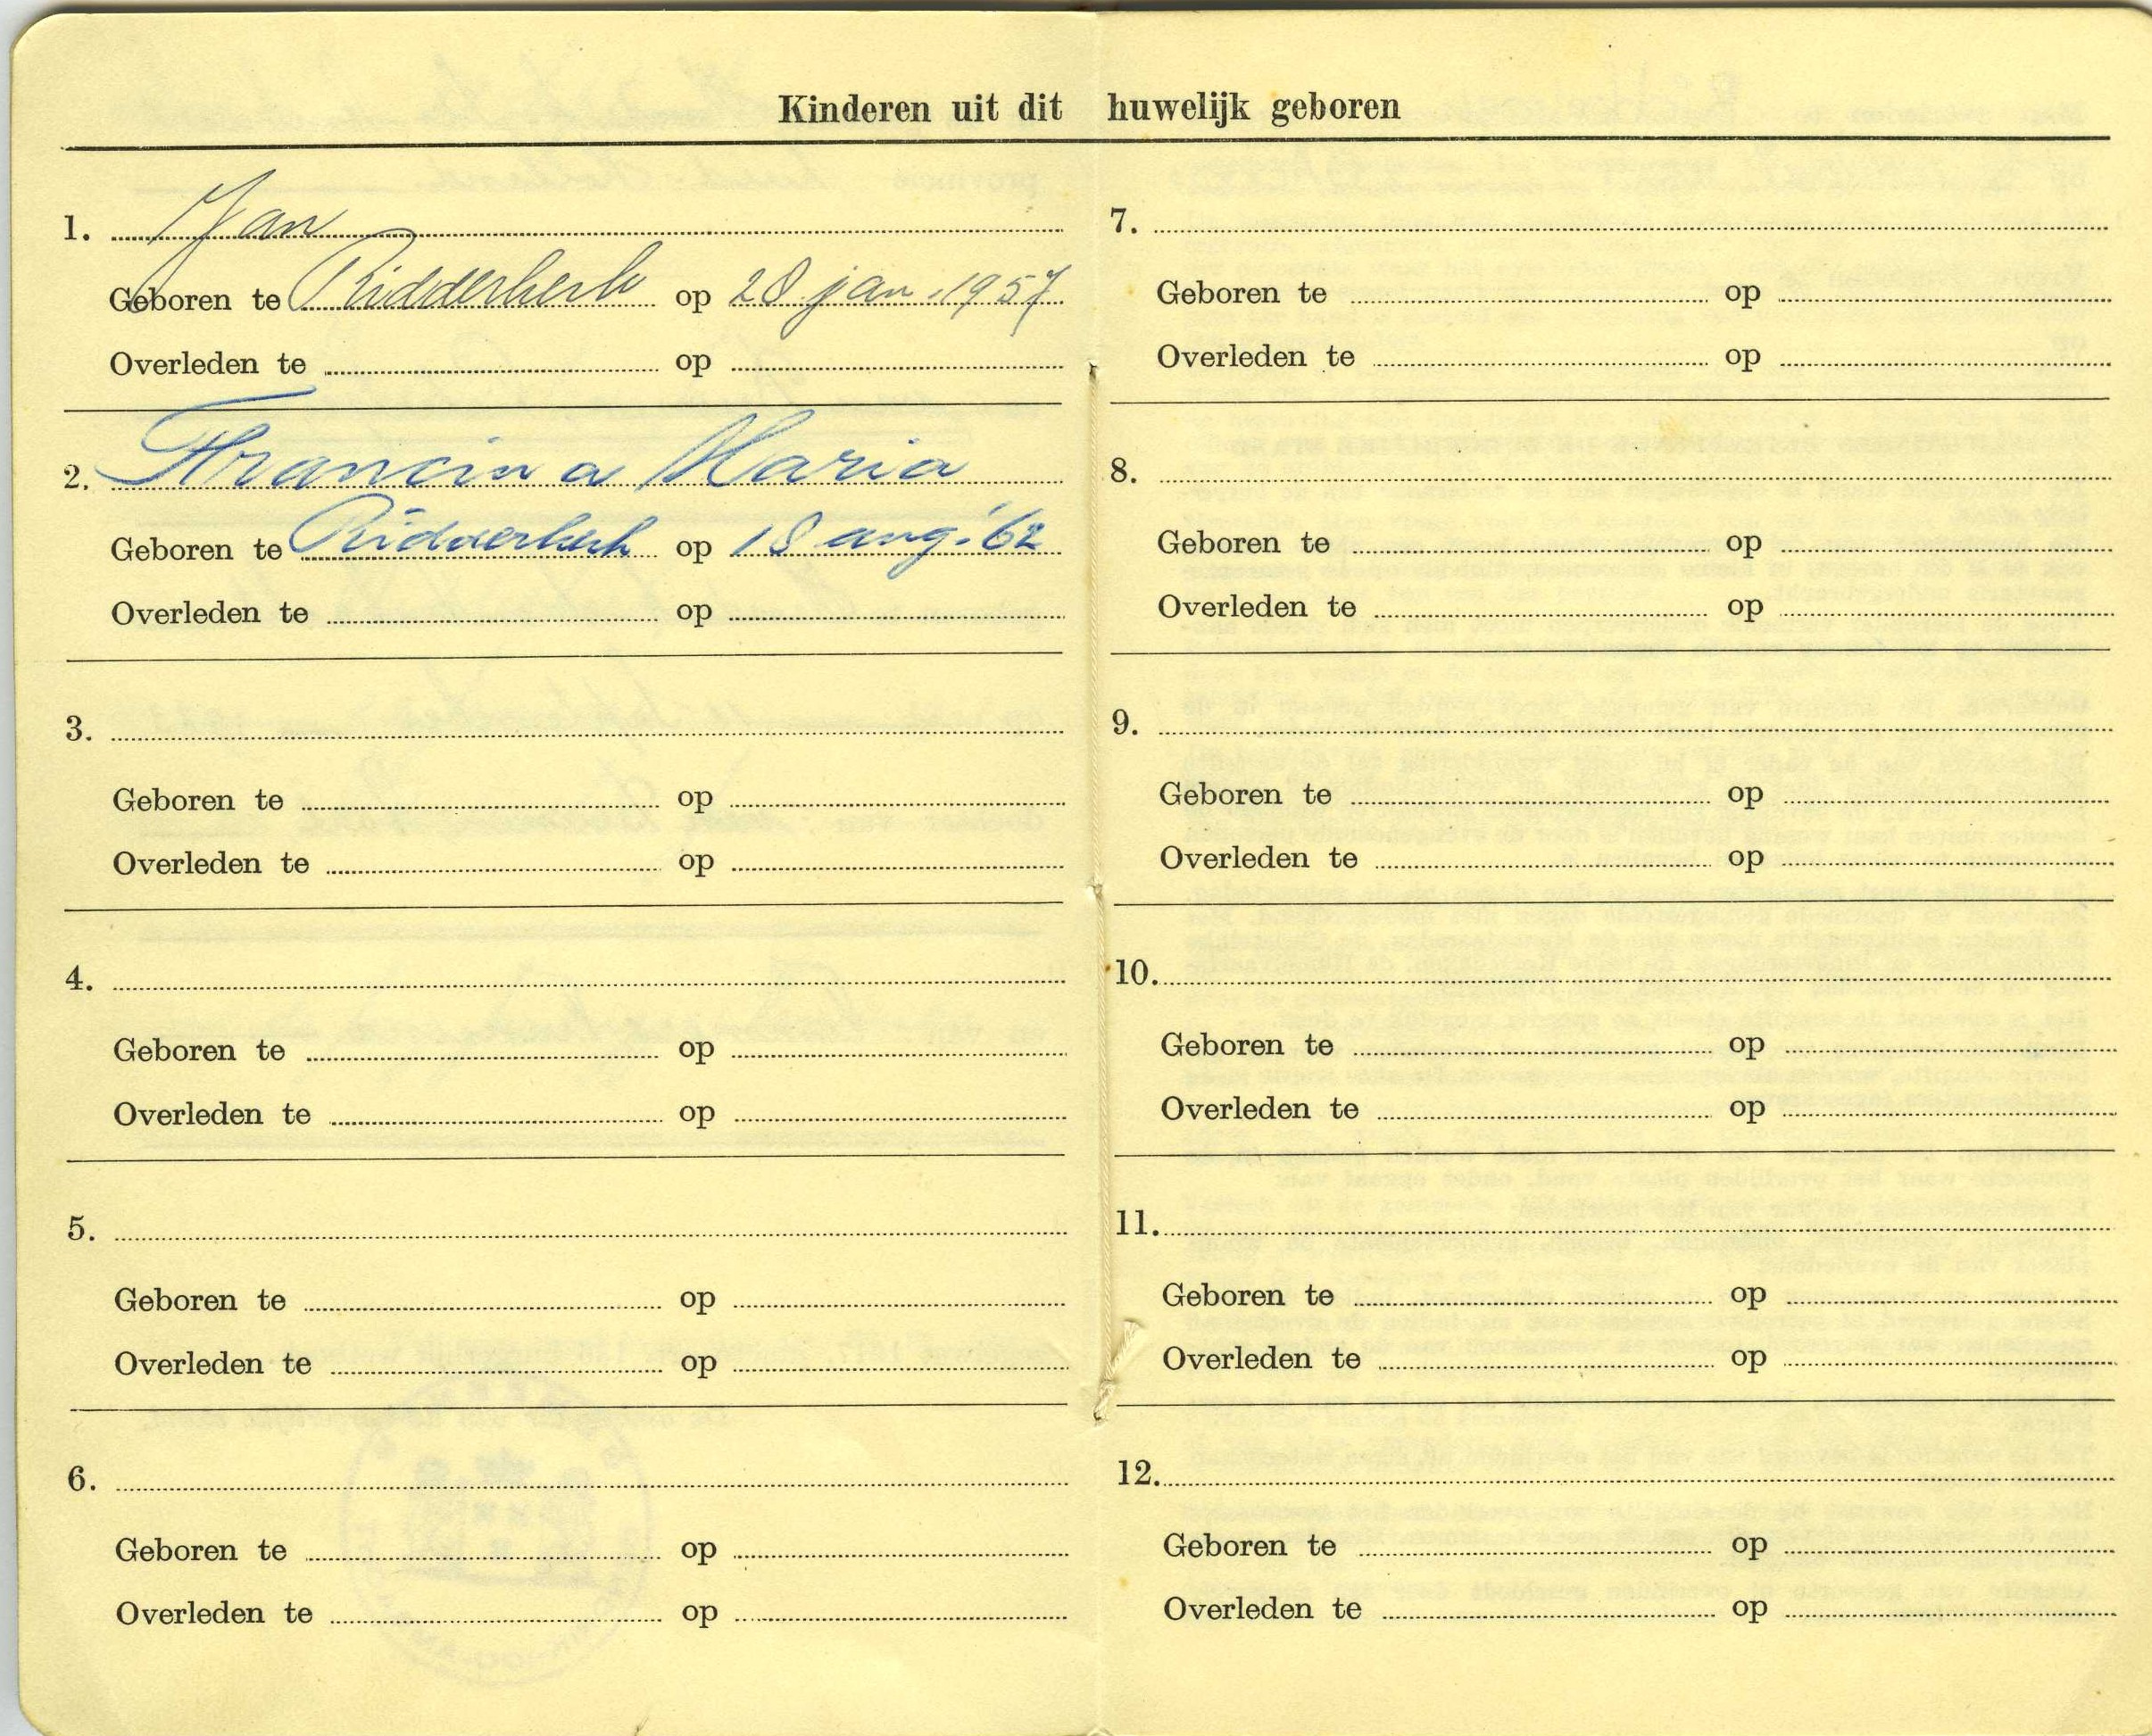 Kinderen uit dit huwelijk geboren
1. Jan
Geboren te Ridderkerk op 28 jan. 1957
Overleden te op
2. Francina Maria
Geboren te Ridderkerk op 18 aug. '62
Overleden te op
3.
Geboren te op
Overleden te op
4.
Geboren te op
Overleden te op
5.
Geboren te op
Overleden te op
6.
Geboren te op
Overleden te op
7.
Geboren te op
Overleden te op
8.
Geboren te op
Overleden te op
9.
Geboren te op
Overleden te op
10.
Geboren te op
Overleden te op
11.
Geboren te op
Overleden te op
12.
Geboren te op
Overleden te op